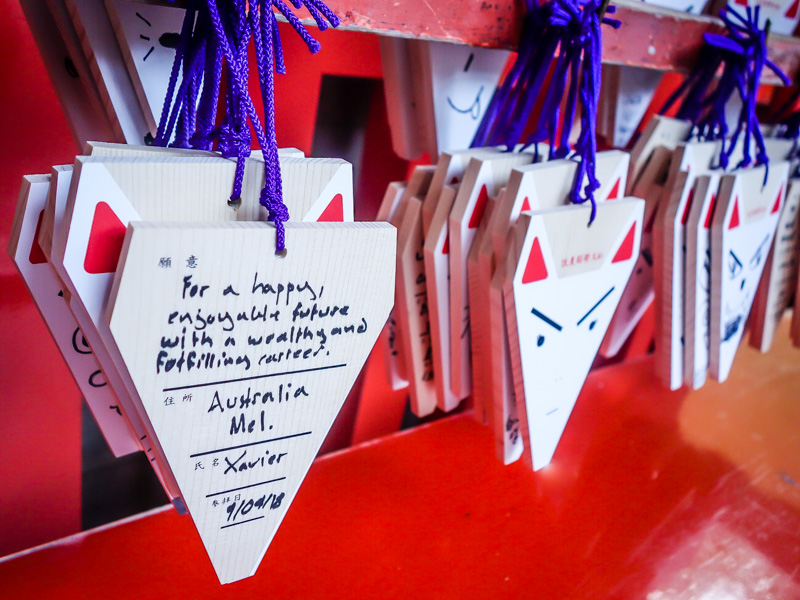 願意
For a happy,
enjoyable future
with a wealthy and
fotfilling carreer.
住所
Australia
Mel.
氏名 Xavier
参拝日
9/04/18